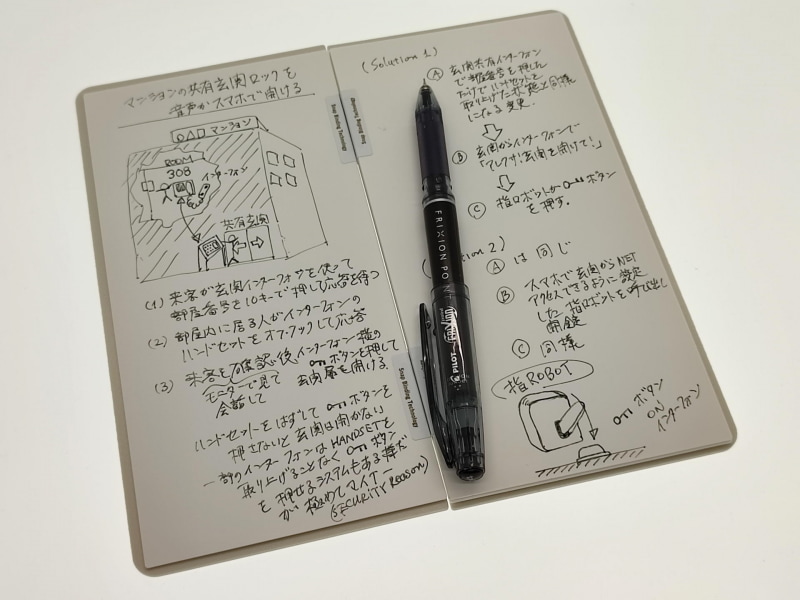 マンションの共有玄関ロックを
音声かスマホで開ける
○△□ マンション
ROOM
308
インターフォン
共有玄関
(1) 来客が玄関インターフォンを使って
部屋番号を10キーで押して応答を待つ
(2) 部屋内に居る人がインターフォンの
ハンドセットをオフフックして応答
(3) 来客を確認後インターフォン機の
モニターで見て ボタンを押して
会話して 玄関扉を開ける
ハンドセットをはずして ボタンを
押さないと玄関は開かない
一部のインターフォンはHANDSETを
取り上げることなく ボタン
を押せるシステムもある様だ
が極めてマイナー
(SECURITY Reason)
Snap Binding Technology
Snap Binding Technology
Snap Binding Technology
(Solution 1)
Ⓐ 玄関共有インターフォン
で部屋番号を押した
だけでハンドセットを
取り上げた状態と同様
になる変更.
Ⓑ 玄関からインターフォンで
「アレクサ!玄関を開けて!」
Ⓒ 指ロボットが ボタン
を押す.
tion 2)
Ⓐ は同じ
Ⓑ スマホで玄関からNET
アクセスできるように設定
した指ロボットを呼び出し
開錠
Ⓒ 同様
指ROBOT
ボタン
ON
インターフォン
FRIXION POINT
PILOT